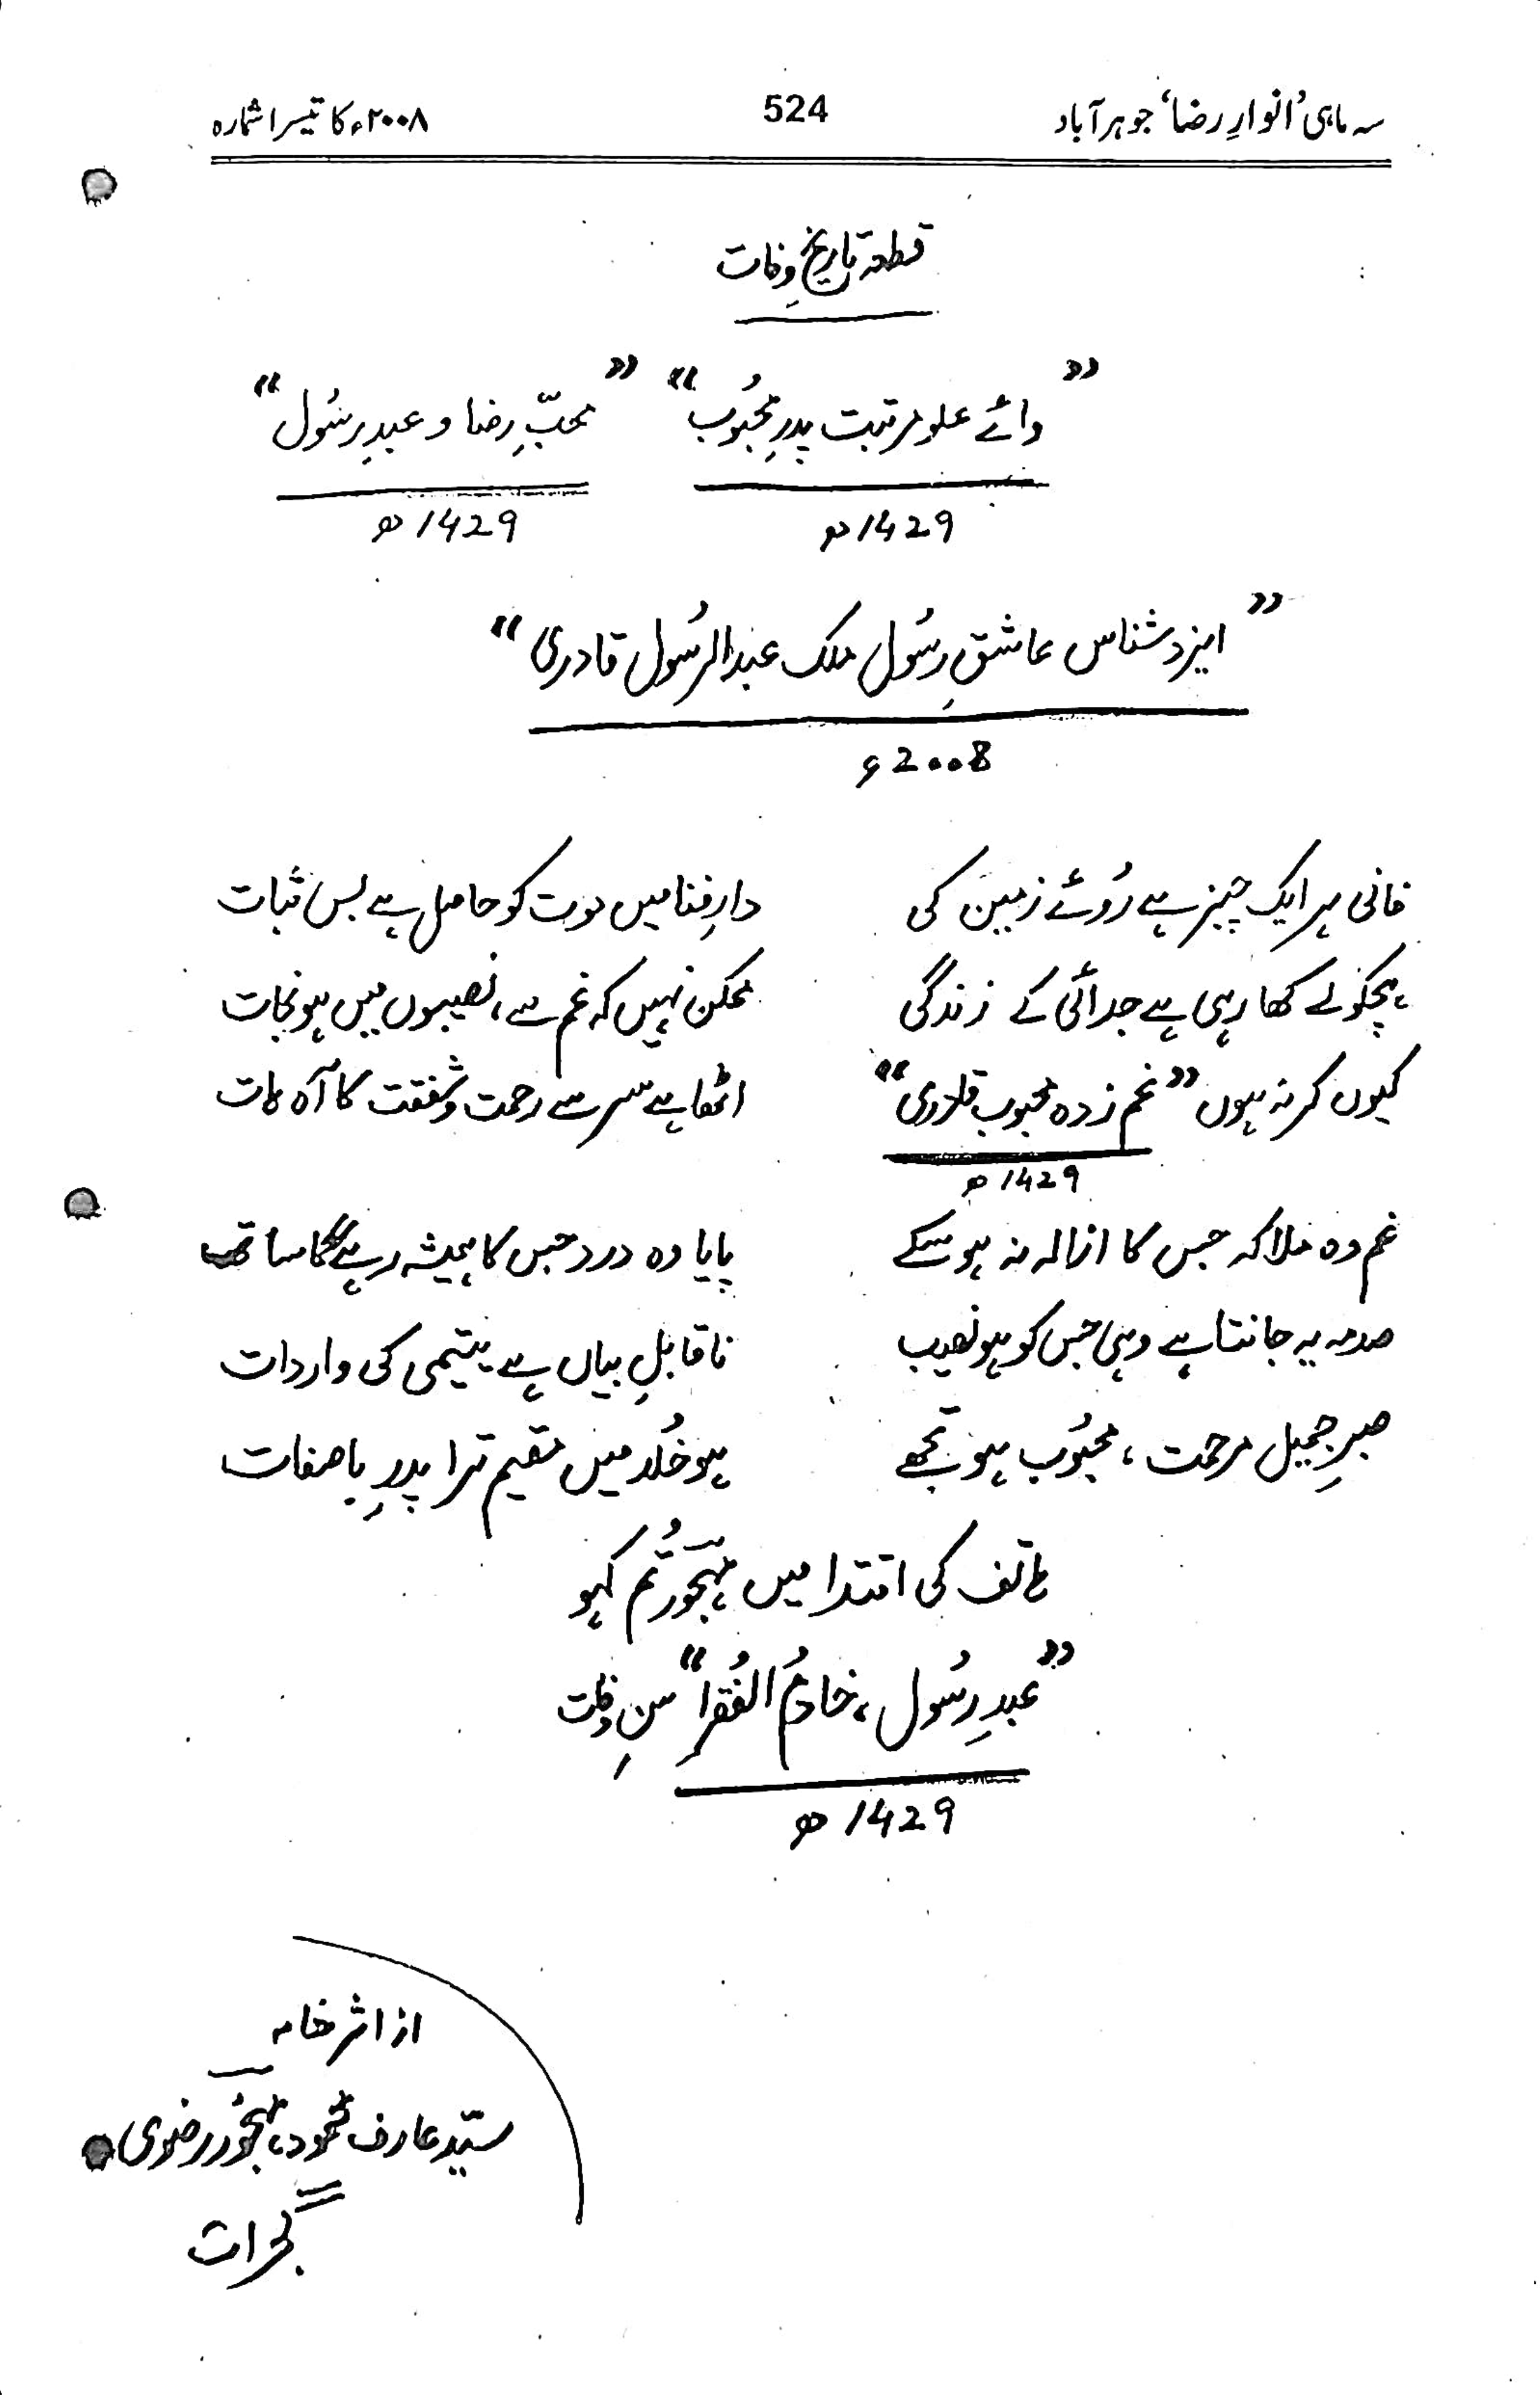 سہ ماہی ’انوارِ رضا‘ جوہرآباد 524 ۲۰۰۸ء کا تیسرا شمارہ
قطعہ تاریخِ وفات
”وائے علو مرتبت پدرِ محبُوب“ ”محبِّ رضا و عبدِ رسُول“
1429ھ 1429ھ
”ایزد شناس عاشقِ رسُول ملک عبدالرسُول قادری“
2008ء
فانی ہر ایک چیز ہے رُوئے زمین کی دارِ فنا میں موت کو حاصل ہے بس ثبات
ہچکولے کھا رہی ہے جدائی کے زندگی ممکن نہیں کہ غم سے، نصیبوں میں ہو نجات
کیوں کر نہ ہوں ”غم زدہ محبوب قادری“ اٹھا ہے سر سے رحمت و شفقت کا آہ ہات
1429ھ
غم وہ ملا کہ جس کا ازالہ نہ ہو سکے پایا وہ درد جس کا ہمیشہ رہے گا ساتھ
صدمہ یہ جانتا ہے وہی جس کو ہو نصیب ناقابلِ بیاں ہے یتیمی کی واردات
صبرِ جمیل مرحمت، محبُوب ہو تجھے ہو خُلد میں مقیم ترا پدرِ با صفات
ہاتف کی اقتدا میں مہجور تُم کہو
”عبدِ رسُول، خادمُ الفُقرا“ سنِ وفات
1429ھ
از اثر خامہ
سیّد عارف محمود مہجور رضوی
گجرات